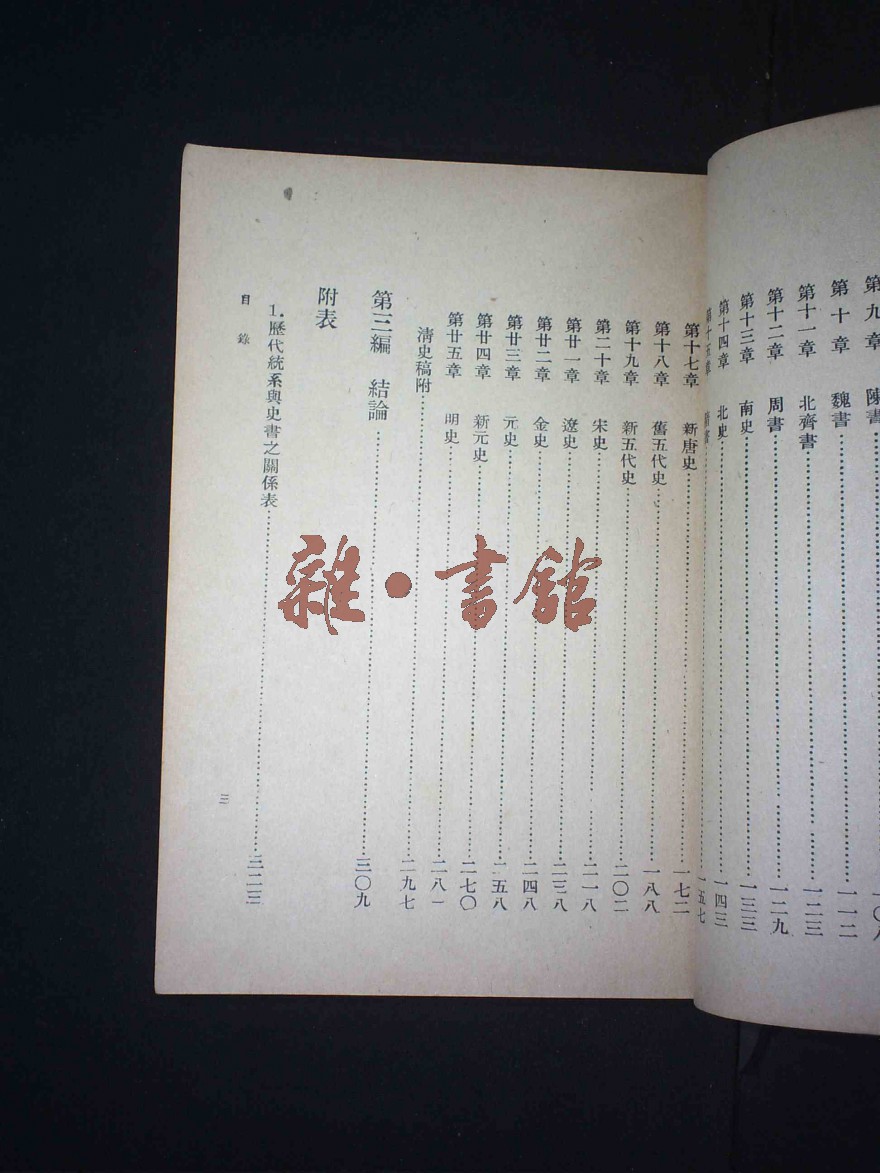 第九章 陳書……一〇八
第十章 魏書……一一二
第十一章 北齊書……一二三
第十二章 周書……一二九
第十三章 南史……一三三
第十四章 北史……一四三
第十五章 書……一五七
第十七章 新唐史……一七二
第十八章 舊五代史……一八八
第十九章 新五代史……二〇二
第二十章 宋史……二一八
第廿一章 遼史……二三八
第廿二章 金史……二四八
第廿三章 元史……二五八
第廿四章 新元史……二七〇
第廿五章 明史……二八一
清史稿附……二九七
第三編 結論……三〇九
附表
1.歷代統系與史書之關係表……三二三
目錄
三
雜·書館